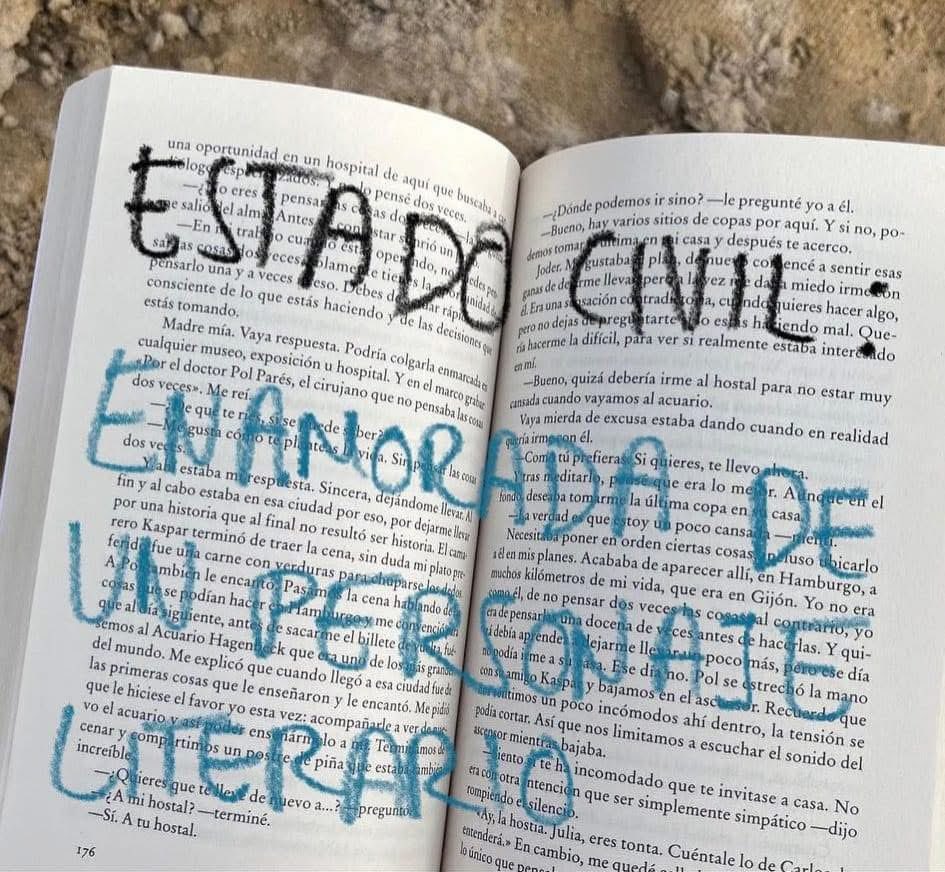 ESTADO CIVIL:
ENAMORADA DE
UN PERSONAJE
LITERARIO
una oportunidad en un hospital de aquí que buscaba
pensé dos veces.
—En mi trabajo
pensarlo una y a veces
consciente de lo que estás haciendo y de las decisiones que
estás tomando.
Madre mía. Vaya respuesta. Podría colgarla enmarcada en
cualquier museo, exposición u hospital. Y en el marco grabar
«Por el doctor Pol Parés, el cirujano que no pensaba las cosas
dos veces». Me reí.
—Me gusta cómo te planteas la vida. Sin pensar las cosas
dos veces.
Y allí estaba mi respuesta. Sincera, dejándome llevar. Al
fin y al cabo estaba en esa ciudad por eso, por dejarme llevar
por una historia que al final no resultó ser historia. El cama-
rero Kaspar terminó de traer la cena, sin duda mi plato pre-
ferido fue una carne con verduras para chuparse los dedos.
A Pol también le encantó. Pasamos la cena hablando de
cosas que se podían hacer en Hamburgo y me convenció
que al día siguiente, antes de sacarme el billete de vuelta, fué-
semos al Acuario Hagenbeck que era uno de los más grandes
del mundo. Me explicó que cuando llegó a esa ciudad fue de
las primeras cosas que le enseñaron y le encantó. Me pidió
que le hiciese el favor yo esta vez: acompañarle a ver de nue-
vo el acuario y así poder enseñárnoslo a mí. Terminamos de
cenar y compartimos un postre de piña que estaba también
increíble.
—¿Quieres que te lleve de nuevo a...? —preguntó.
—¿A mi hostal? —terminé.
—Sí. A tu hostal.
176
—¿Dónde podemos ir sino? —le pregunté yo a él.
—Bueno, hay varios sitios de copas por aquí. Y si no, po-
demos tomar la última en mi casa y después te acerco.
Joder. Me gustaba el plan. De nuevo comencé a sentir esas
ganas de dejarme llevar, pero a la vez me daba miedo irme con
él. Era una sensación contradictoria, cuando quieres hacer algo,
pero no dejas de preguntarte si lo estás haciendo mal. Que-
ría hacerme la difícil, para ver si realmente estaba interesado
en mí.
—Bueno, quizá debería irme al hostal para no estar muy
cansada cuando vayamos al acuario.
Vaya mierda de excusa estaba dando cuando en realidad
quería irme con él.
—Como tú prefieras. Si quieres, te llevo ahora.
Tras meditarlo, pensé que era lo mejor. Aunque en el
fondo, deseaba tomarme la última copa en su casa.
—La verdad es que estoy un poco cansada —mentí.
Necesitaba poner en orden ciertas cosas, incluso ubicarlo
a él en mis planes. Acababa de aparecer allí, en Hamburgo, a
muchos kilómetros de mi vida, que era en Gijón. Yo no era
como él, de no pensar dos veces las cosas, al contrario, yo
era de pensarlas una docena de veces antes de hacerlas. Y qui-
zá debía aprender a dejarme llevar un poco más, pero ese día
no podía irme a su casa. Ese día no. Pol se estrechó la mano
con su amigo Kaspar y bajamos en el ascensor. Recuerdo que
nos sentimos un poco incómodos ahí dentro, la tensión se
podía cortar. Así que nos limitamos a escuchar el sonido del
ascensor mientras bajaba.
—Siento si te ha incomodado que te invitase a casa. No
era con otra intención que ser simplemente simpático —dijo
rompiendo el silencio.
«Ay, la hostia. Julia, eres tonta. Cuéntale lo de Carlos,
entenderá.» En cambio, me quedé
lo único que